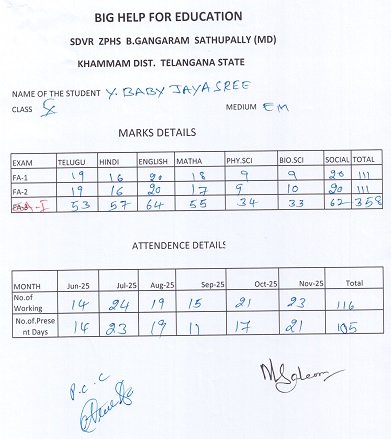 BIG HELP FOR EDUCATION
SDVR ZPHS B.GANGARAM SATHUPALLY (MD)
KHAMMAM DIST. TELANGANA STATE
NAME OF THE STUDENT Y. BABY JAYASREE
CLASS X MEDIUM EM
MARKS DETAILS
EXAM TELUGU HINDI ENGLISH MATHA PHY.SCI BIO.SCI SOCIAL TOTAL
FA-1 19 16 20 18 9 9 20 111
FA-2 19 16 20 17 9 10 20 111
SA-I 53 57 64 55 34 33 62 358
ATTENDENCE DETAILS
MONTH Jun-25 Jul-25 Aug-25 Sep-25 Oct-25 Nov-25 Total
No.of Working 14 24 19 15 21 23 116
No.of.Present Days 14 23 19 11 17 21 105
P.C.C